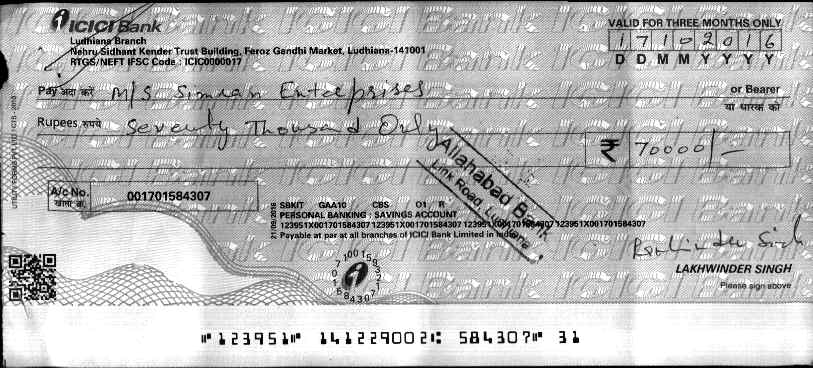 ICICI Bank
Ludhiana Branch
Nehru Sidhant Kender Trust Building, Feroz Gandhi Market, Ludhiana-141001
RTGS/NEFT IFSC Code : ICIC0000017
VALID FOR THREE MONTHS ONLY
1 7 1 0 2 0 1 6
D D M M Y Y Y Y
Pay अदा करें M/S. Simran Enterprises or Bearer
या धारक को
Rupees रुपये Seventy Thousand Only
₹ 70000/-
Allahabad Bank
Link Road, Ludhiana
A/c No. 001701584307
SBKIT GAA10 CBS 01 R
PERSONAL BANKING : SAVINGS ACCOUNT
123951X001701584307 123951X001701584307 123951X001701584307 123951X001701584307
Payable at par at all branches of ICICI Bank Limited in India
21/09/2016
LAKHWINDER SINGH
Please sign above
⑈123951⑈ 141229002⑆ 584307⑈ 31